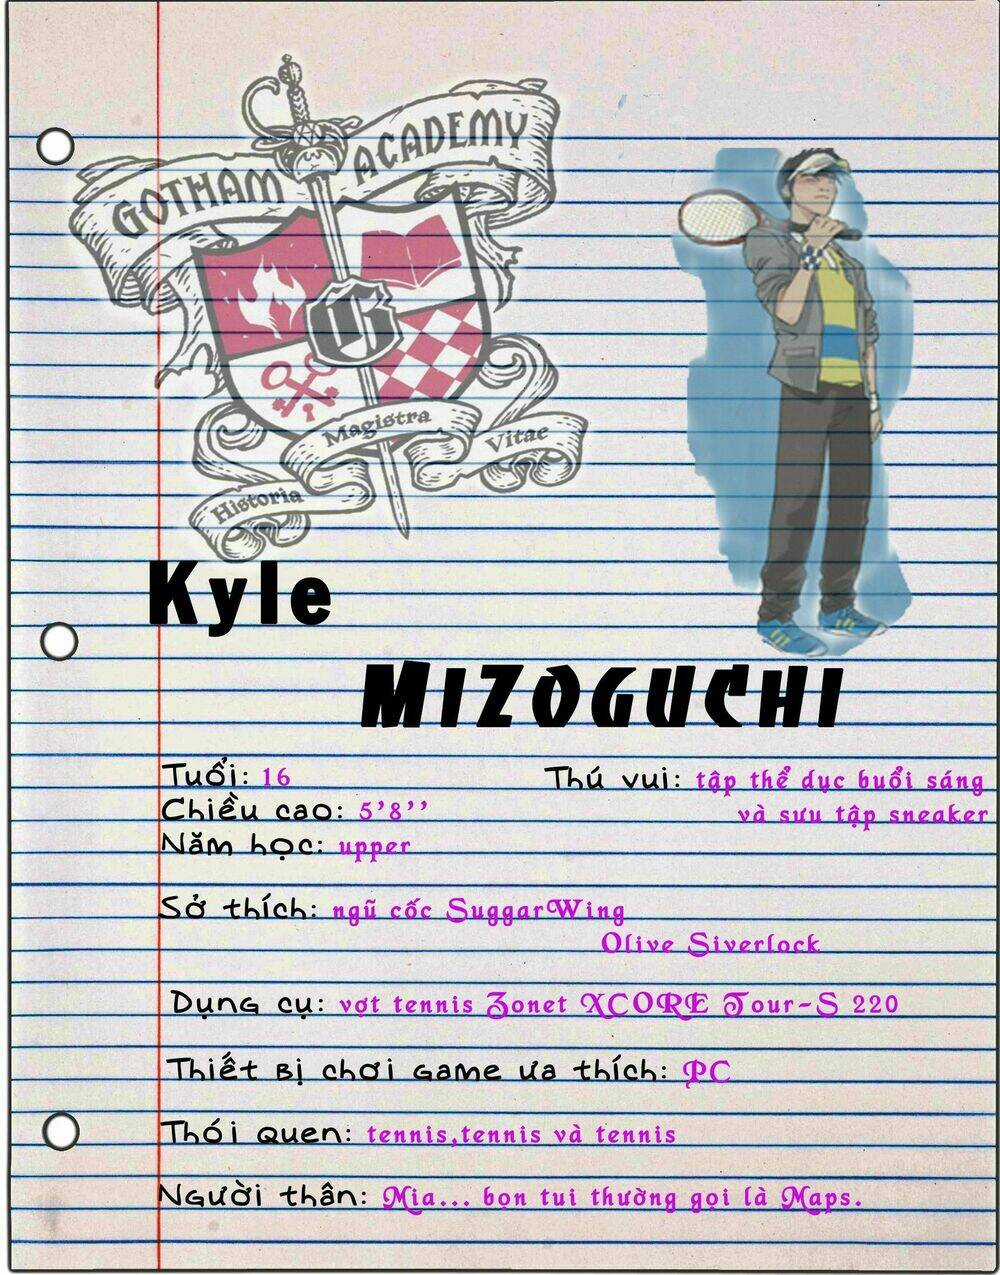 GOTHAM ACADEMY
G
Historia Magistra Vitae
Kyle
MIZOGUCHI
Tuổi: 16
Thú vui: tập thể dục buổi sáng
và sưu tập sneaker
Chiều cao: 5'8''
Năm học: upper
Sở thích: ngũ cốc SuggarWing
Olive Siverlock
Dụng cụ: vợt tennis Zonet XCORE Tour-S 220
Thiết bị chơi game ưa thích: PC
Thói quen: tennis,tennis và tennis
Người thân: Mia... bọn tui thường gọi là Maps.